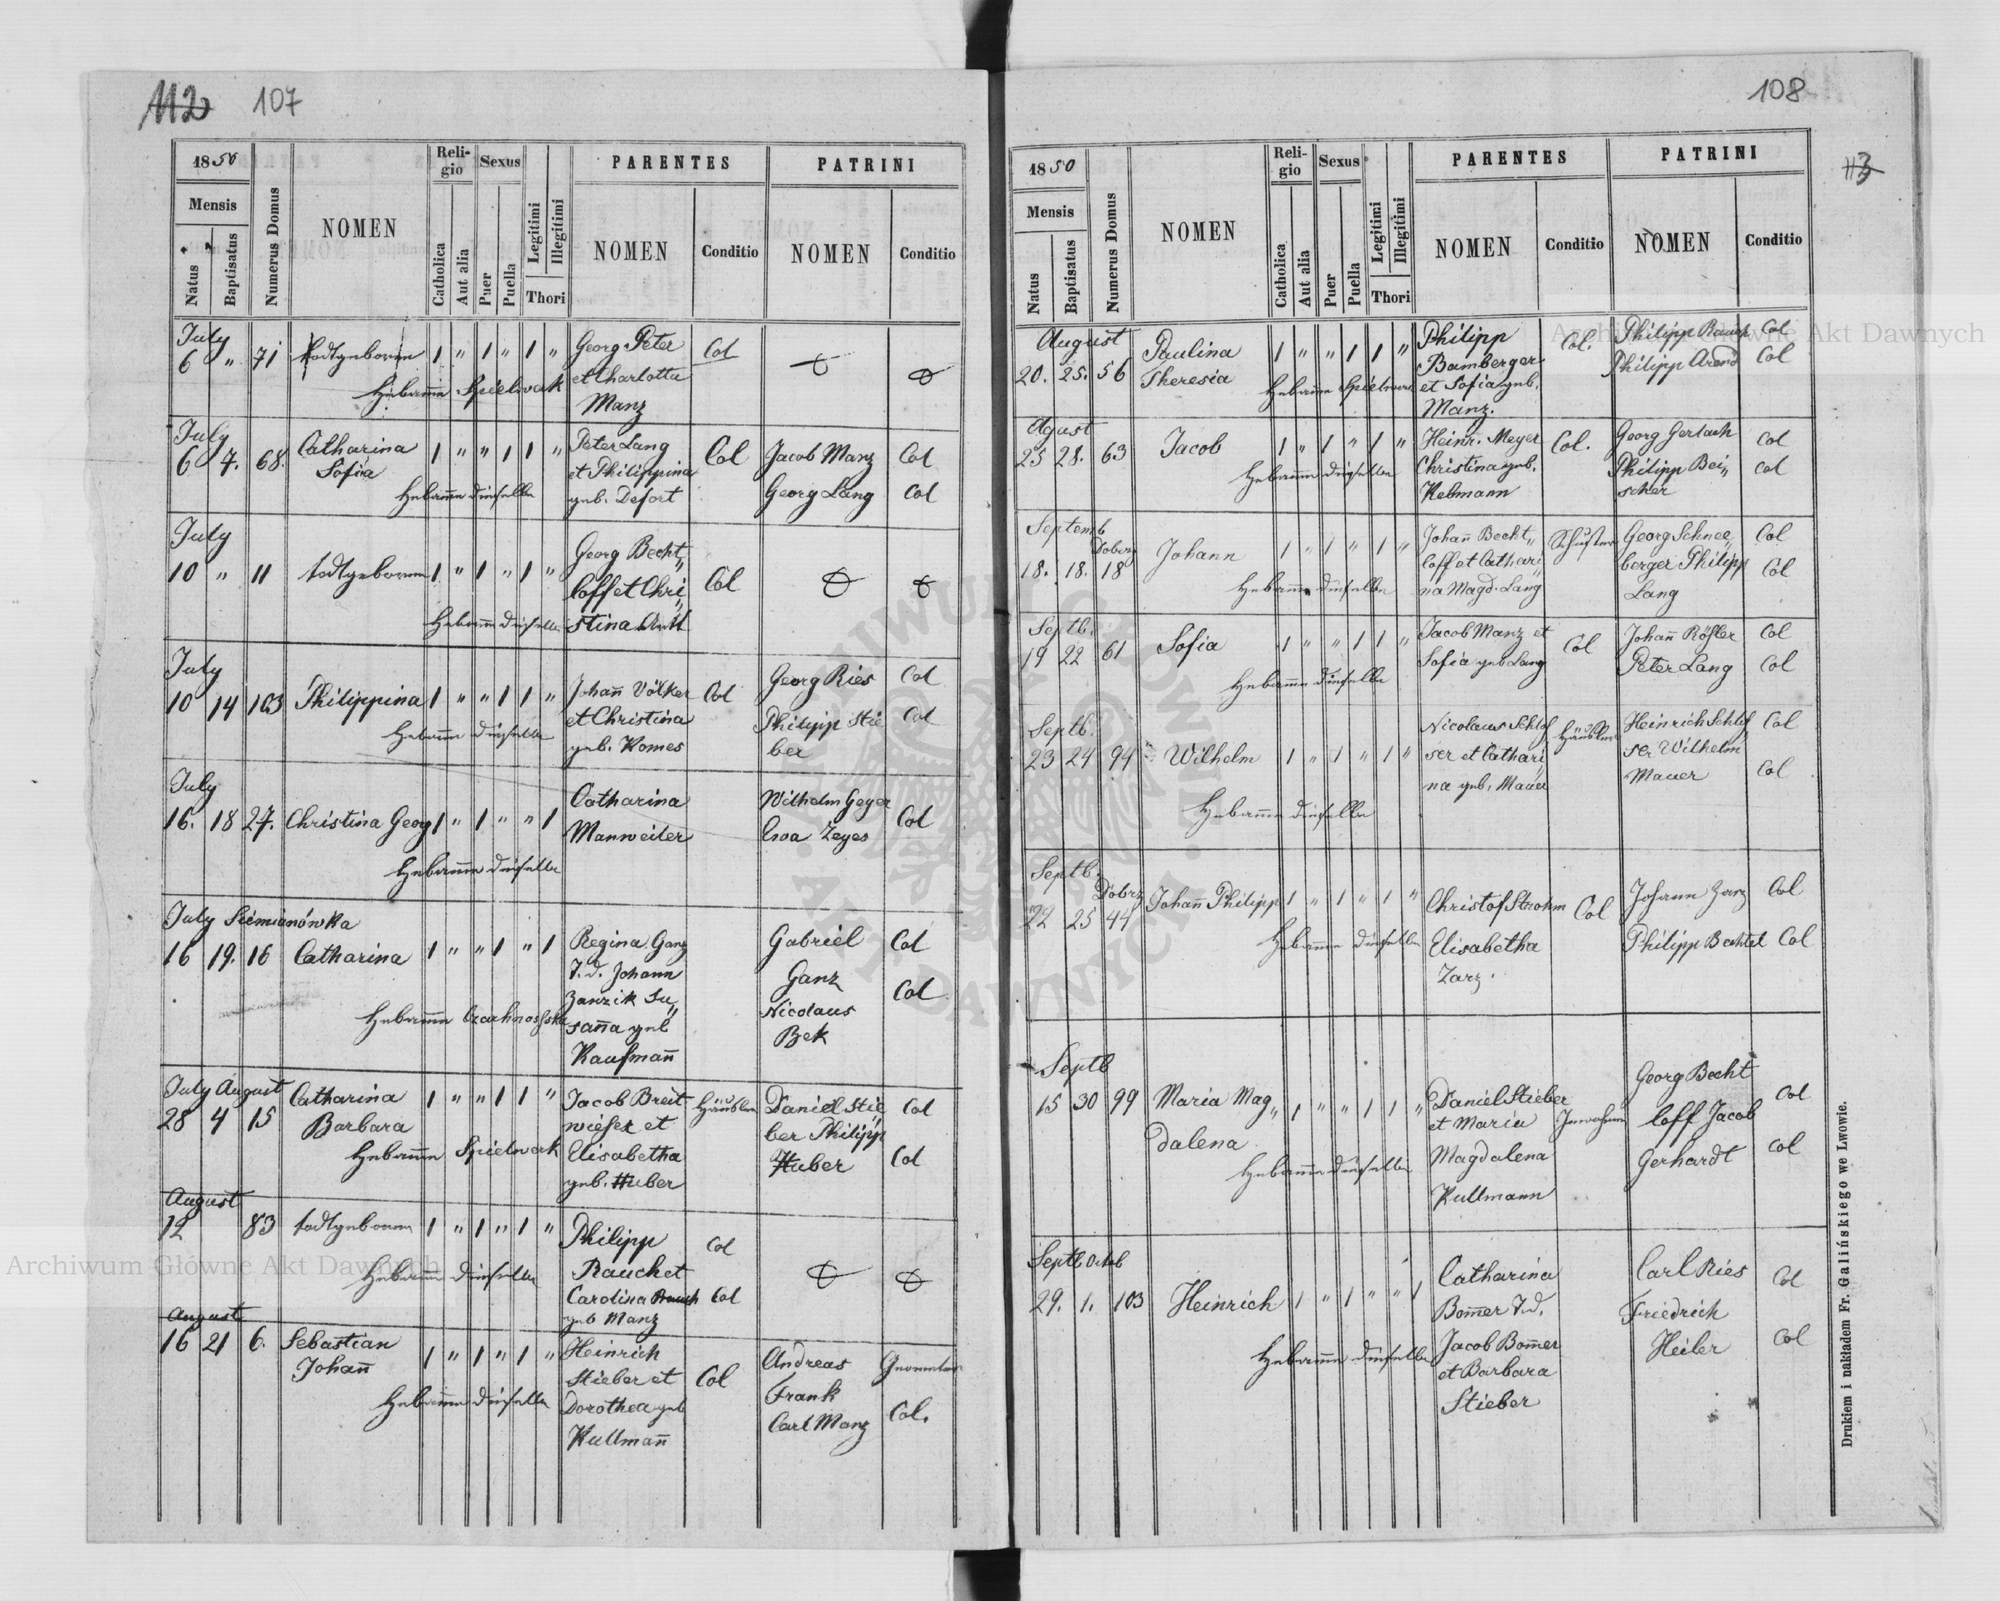 112 107
1850
Religio
Sexus
PARENTES
PATRINI
Mensis
Numerus Domus
NOMEN
Legitimi
Illegitimi
NOMEN
Conditio
NOMEN
Conditio
Natus
Baptisatus
Catholica
Aut alia
Puer
Puella
Thori
July
6 " 71 todtgeboren 1 " 1 " 1 " Georg Peter Col
Hebamme Spielwerk et Charlotta
Manz
July
6 7. 68. Catharina 1 " " 1 1 " Peter Lang Col Jacob Manz Col
Sofia et Philippina
Hebamme dieselbe geb. Defort Georg Lang Col
July
10 " 11 todtgeboren 1 " 1 " 1 " Georg Becht„
loff et Chri„ Col
Hebamme dieselbe stina
July
10 14 103 Philippina 1 " " 1 1 " Johañ Völker Col Georg Ries Col
Hebamme dieselbe et Christina Philipp Stie Col
geb. Komes ber
July
16. 18 27. Christina Georg 1 " 1 " " 1 Catharina Wilhelm Geyer Col
Manweiler Eva Zeyes
Hebamme dieselbe
July Siemianówka
16 19. 16 Catharina 1 " " 1 " 1 Regina Ganz Gabriel Col
T. d. Johann Ganz
Zanzik Su„ Nicolaus Col
Hebamme saña geb Bek
Kaufmañ
July August
28 4 15 Catharina 1 " " 1 1 " Jacob Breit Häusler Daniel Stie Col
Barbara wieser et ber Philipp
Hebamme Spielwerk Elisabetha Huber Col
geb. Huber
August
12 83 todtgeboren 1 " 1 " 1 " Philipp Col
Hebamme dieselbe Rauch et
Carolina Rauch Col
geb Manz
August
16 21 6. Sebastian 1 " 1 " 1 " Heinrich Andreas
Johañ Stieber et Col Frank
Hebamme dieselbe Dorothea geb Carl Manz Col.
Kullmañ
108
113
1850
Religio
Sexus
PARENTES
PATRINI
Mensis
Numerus Domus
NOMEN
Legitimi
Illegitimi
NOMEN
Conditio
NOMEN
Conditio
Natus
Baptisatus
Catholica
Aut alia
Puer
Puella
Thori
August
20. 25. 56 Paulina 1 " " 1 1 " Philipp Col. Philipp Rauch Col
Theresia Bamberger Philipp Arend Col
Hebamme Spielwerk et Sofia geb.
Manz.
Agust
25 28. 63 Jacob 1 " 1 " 1 " Heinr. Meyer Col. Georg Gerlach Col
Hebamme dieselbe Christina geb. Philipp Bei„ Col
Kelmann scher
Septemb
Dobrz
18. 18. 18 Johann 1 " 1 " 1 " Johañ Becht„ Schuster Georg Schnee„ Col
loff et Cathari„ berger Philipp Col
Hebamme dieselbe na Magd. Lang Lang
Septb.
19 22 61 Sofia 1 " " 1 1 " Jacob Manz et Col Johañ Rößler Col
Hebamme dieselbe Sofia geb Lang Peter Lang Col
Septb.
23 24 94 Wilhelm 1 " 1 " 1 " Nicolaus Schlos Häusler Heinrich Schlos Col
ser et Cathari„ ser Wilhelm
na geb. Mauer Mauer Col
Hebamme dieselbe
Septb.
Dobrz
22 25 44 Johañ Philipp 1 " 1 " 1 " Christof Strohm Col Johann Zarz Col
Hebamme dieselbe Elisabetha Philipp Bechtel Col
Zarz.
Septb
15 30 99 Maria Mag„ 1 " " 1 1 " Daniel Stieber Inwohner Georg Becht Col
dalena et Maria loff Jacob
Hebamme dieselbe Magdalena Gerhardt Col
Kullmann
Septb Octob
29. 1. 103 Heinrich 1 " 1 " " 1 Catharina Carl Ries Col
Bom̄er T. d. Friedrich
Hebamme dieselbe Jacob Bom̄er Heiler Col
et Barbara
Stieber
Drukiem i nakładem Fr. Galińskiego we Lwowie.
Archiwum Główne Akt Dawnych
Archiwum Główne Akt Dawnych
ARCHIWUM GŁÓWNE AKT DAWNYCH